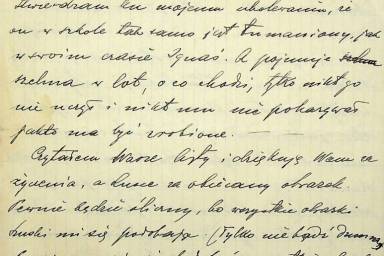 Stwierdzam ku mojemu ubolewaniu, że
on w szkole tak samo jest tumaniony, jak
w swoim czasie Ignaś. A pojmuje
szelma w lot, o co chodzi, tylko nikt go
nie uczył i nikt mu nie pokazywał
jak to ma być zrobione.
Czytałem Wasze listy i dziękuję Wam za
życzenia, a Musie za obiecany obrazek.
Pewnie będzie śliczny, bo wszystkie obrazki
mi się podobają. (Tylko nie bądź dumna